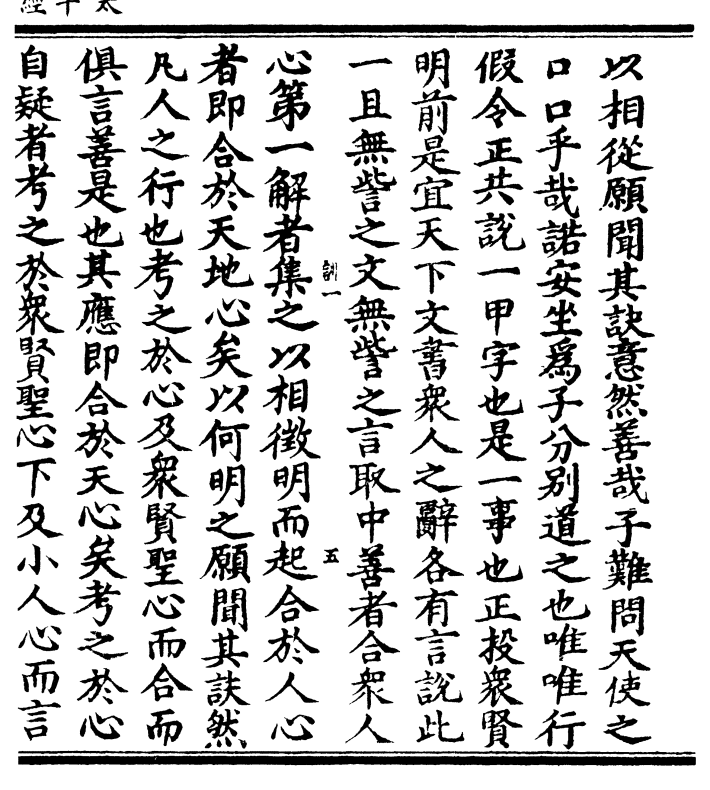 以相從願聞其訣意然善哉子難問天使之
口口乎哉諾安坐爲子分別道之也唯唯行
假令正共說一甲字也是一事也正投衆賢
明前是宜天下文書衆人之辭各有言說此
一且無訾之文無訾之言取中善者合衆人
訓一
五
心第一解者集之以相徵明而起合於人心
者即合於天地心矣以何明之願聞其訣然
凡人之行也考之於心及衆賢聖心而合而
俱言善是也其應即合於天心矣考之於心
自疑者考之於衆賢聖心下及小人心而言